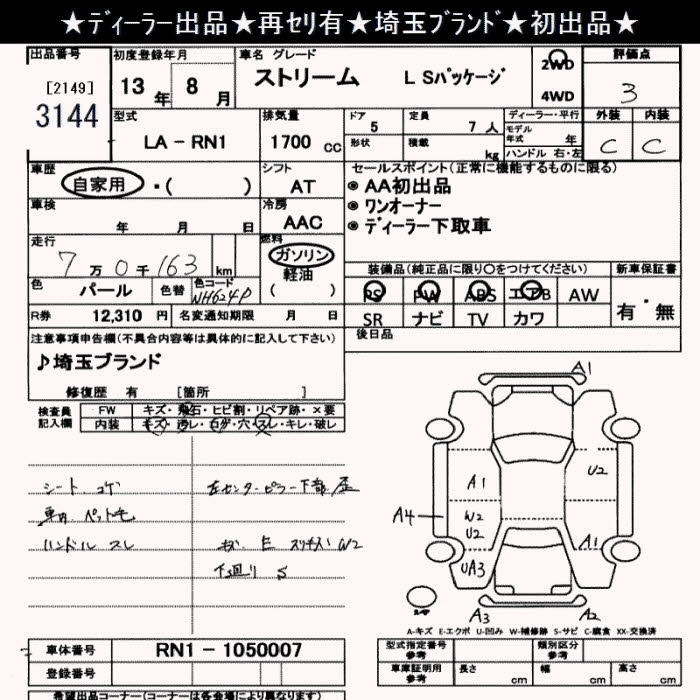 ★ディーラー出品★再セリ有★埼玉ブランド★初出品★
出品番号
[2149]
3144
初度登録年月
13年 8月
車名 グレード
ストリーム LSパッケージ
2WD
4WD
評価点
3
外装 内装
C C
型式
LA-RN1
排気量
1700 cc
ドア
5
形状
定員
7人
積載
kg
ディーラー・平行
モデル年式 年
ハンドル 右・左
車歴
自家用・( )
シフト
AT
車検
年 月 日
冷房
AAC
走行
7万0千163 km
燃料
ガソリン
軽油
( )
色
パール
色替
色コード
NH624P
R券
12,310 円
名変通知期限 月 日
セールスポイント(正常に機能するものに限る)
◉AA初出品
◉ワンオーナー
◉ディーラー下取車
装備品(純正品に限り○をつけてください)
PS PW ABS エアB AW
SR ナビ TV カワ
新車保証書
有・無
後日品
注意事項申告欄(不具合内容等は具体的に記入して下さい)
♪埼玉ブランド
修復歴 有 [箇所 ]
検査員記入欄
FW キズ・飛石・ヒビ割・リペア跡・×要
内装 キズ・汚レ・コゲ・穴・スレ・キレ・破レ
シート コゲ
車内 ペット毛
ハンドル スレ
左センターピラー下部 歪
キズ E スリキズ W2
下廻り S
A1
A1
U2
A4
W2
U2
A1
UA3
A3
A2
A-キズ E-エクボ U-凹み W-補修跡 S-サビ C-腐食 XX-交換済
車体番号
RN1-1050007
登録番号
型式指定番号
参考
類別区分
参考
車庫証明用
参考
長さ cm
幅 cm
高さ cm
希望出品コーナー(コーナーは各会場により異なります)